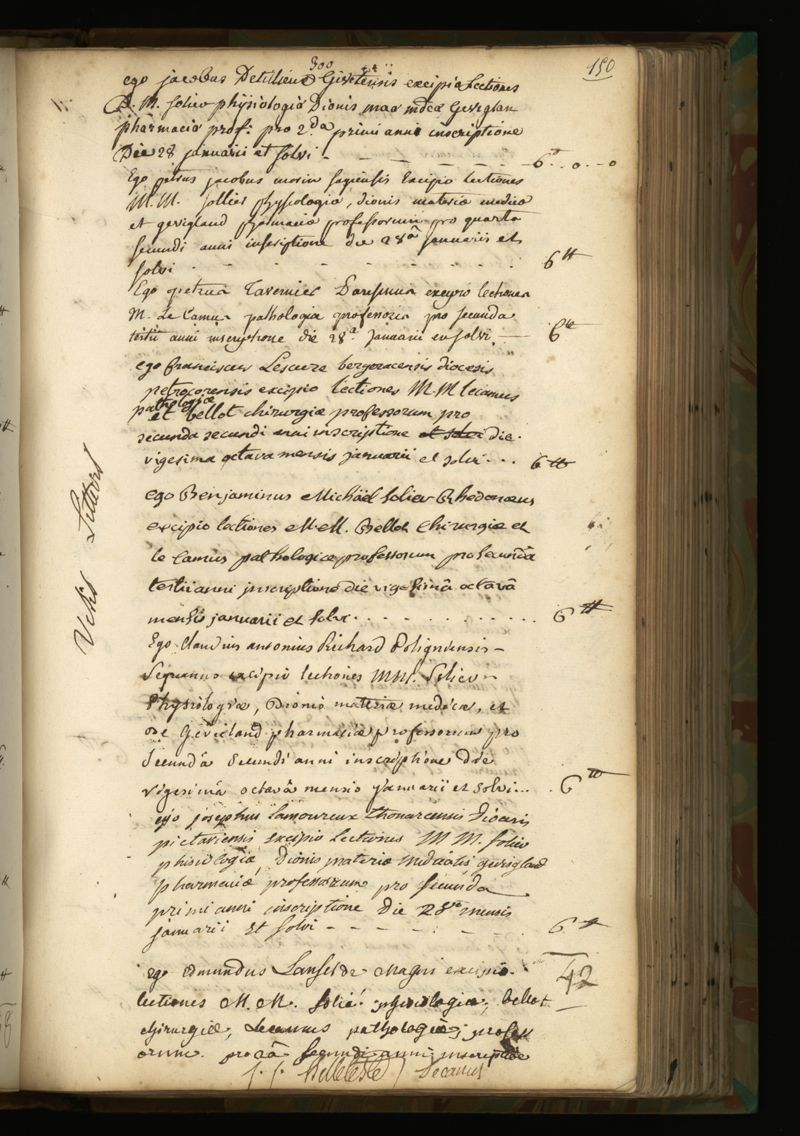 150
300
ego jacobus Detilleux Givetensis excipio Lectiones
D. M. solier physiologiæ Dionis maæ mdcæ Gevigland
pharmaciæ prof: pro 2.da primi anni inscriptione
Die 28 januarii et solvi - - - - - - 6tt..o..o
Ego petrus jacobus morin sagiensis Excipio lectiones
M.M. Sollier physiologiæ, dionis materiæ medicæ
et gevigland pharmaciæ professorum pro quarta
secundi anni inscriptione die 28a januarii et
solvi . . . . . . . . . . 6tt
Ego petrus Tavernier Parisinus excipio lectiones
M. Le Camus pathologiæ professoris pro secunda
tertii anni inscriptione die 28.a januarii et solvi. — 6tt
ego franciscus Lescure bergeracensis diocesis
petrocorensis excipio lectiones M.M lecamus
pathologiæ
et bellot chirurgiæ professorum pro
secunda secundi anni inscriptione et solvi die
vigesima octava mensis januarii et solvi . . . 6tt
Vchs Littard
ego Benjaminus Michael solier Rhedonæus
excipio lectiones M.M. Bellot chirurgiæ et
le Camus pathologicæ professorum pro secundâ
tertii anni inscriptione die vigesimâ octavâ
mensis januarii et solvi . . . . . . . . . . . 6tt
Ego Claudius antonius Richard Poligniensis -
Sequanus excipio lectiones MM. Solier -
Physiologiæ, Dionis materiæ medicæ, et
De Gevigland pharmaciæ professorum pro
Secundâ Secundi anni inscriptione Die
vigesimâ octavâ mensis januarii et solvi... . 6tt
ego josephus Lamoureux thonarcensis diocesis
pictaviensis excipio Lectiones M M. solier
phisiologiæ, Dionis materiæ medicalis gevigland
pharmaciæ, professorum pro secunda
primi anni inscriptione die 28va mensis
januarii et solvi - - - - - - - 6tt
42
ego Edmundus Lansel de Magni excipio
lectiones M. M. solié physiologiæ, bellot
chirurgiæ, Lecamus pathologiæ; profess
orum pro 2â secundi anni inscriptione
j. j. Belleteste Decanus